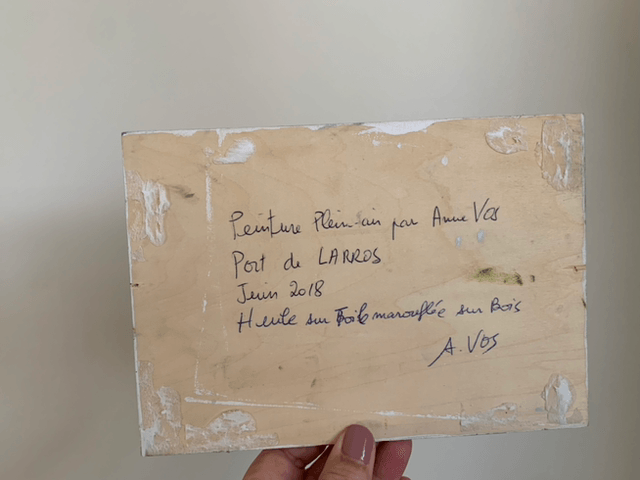 Peinture Plein-air par Anne Vos
Port de LARROS
Juin 2018
Huile sur Toile marouflée sur Bois
A. Vos